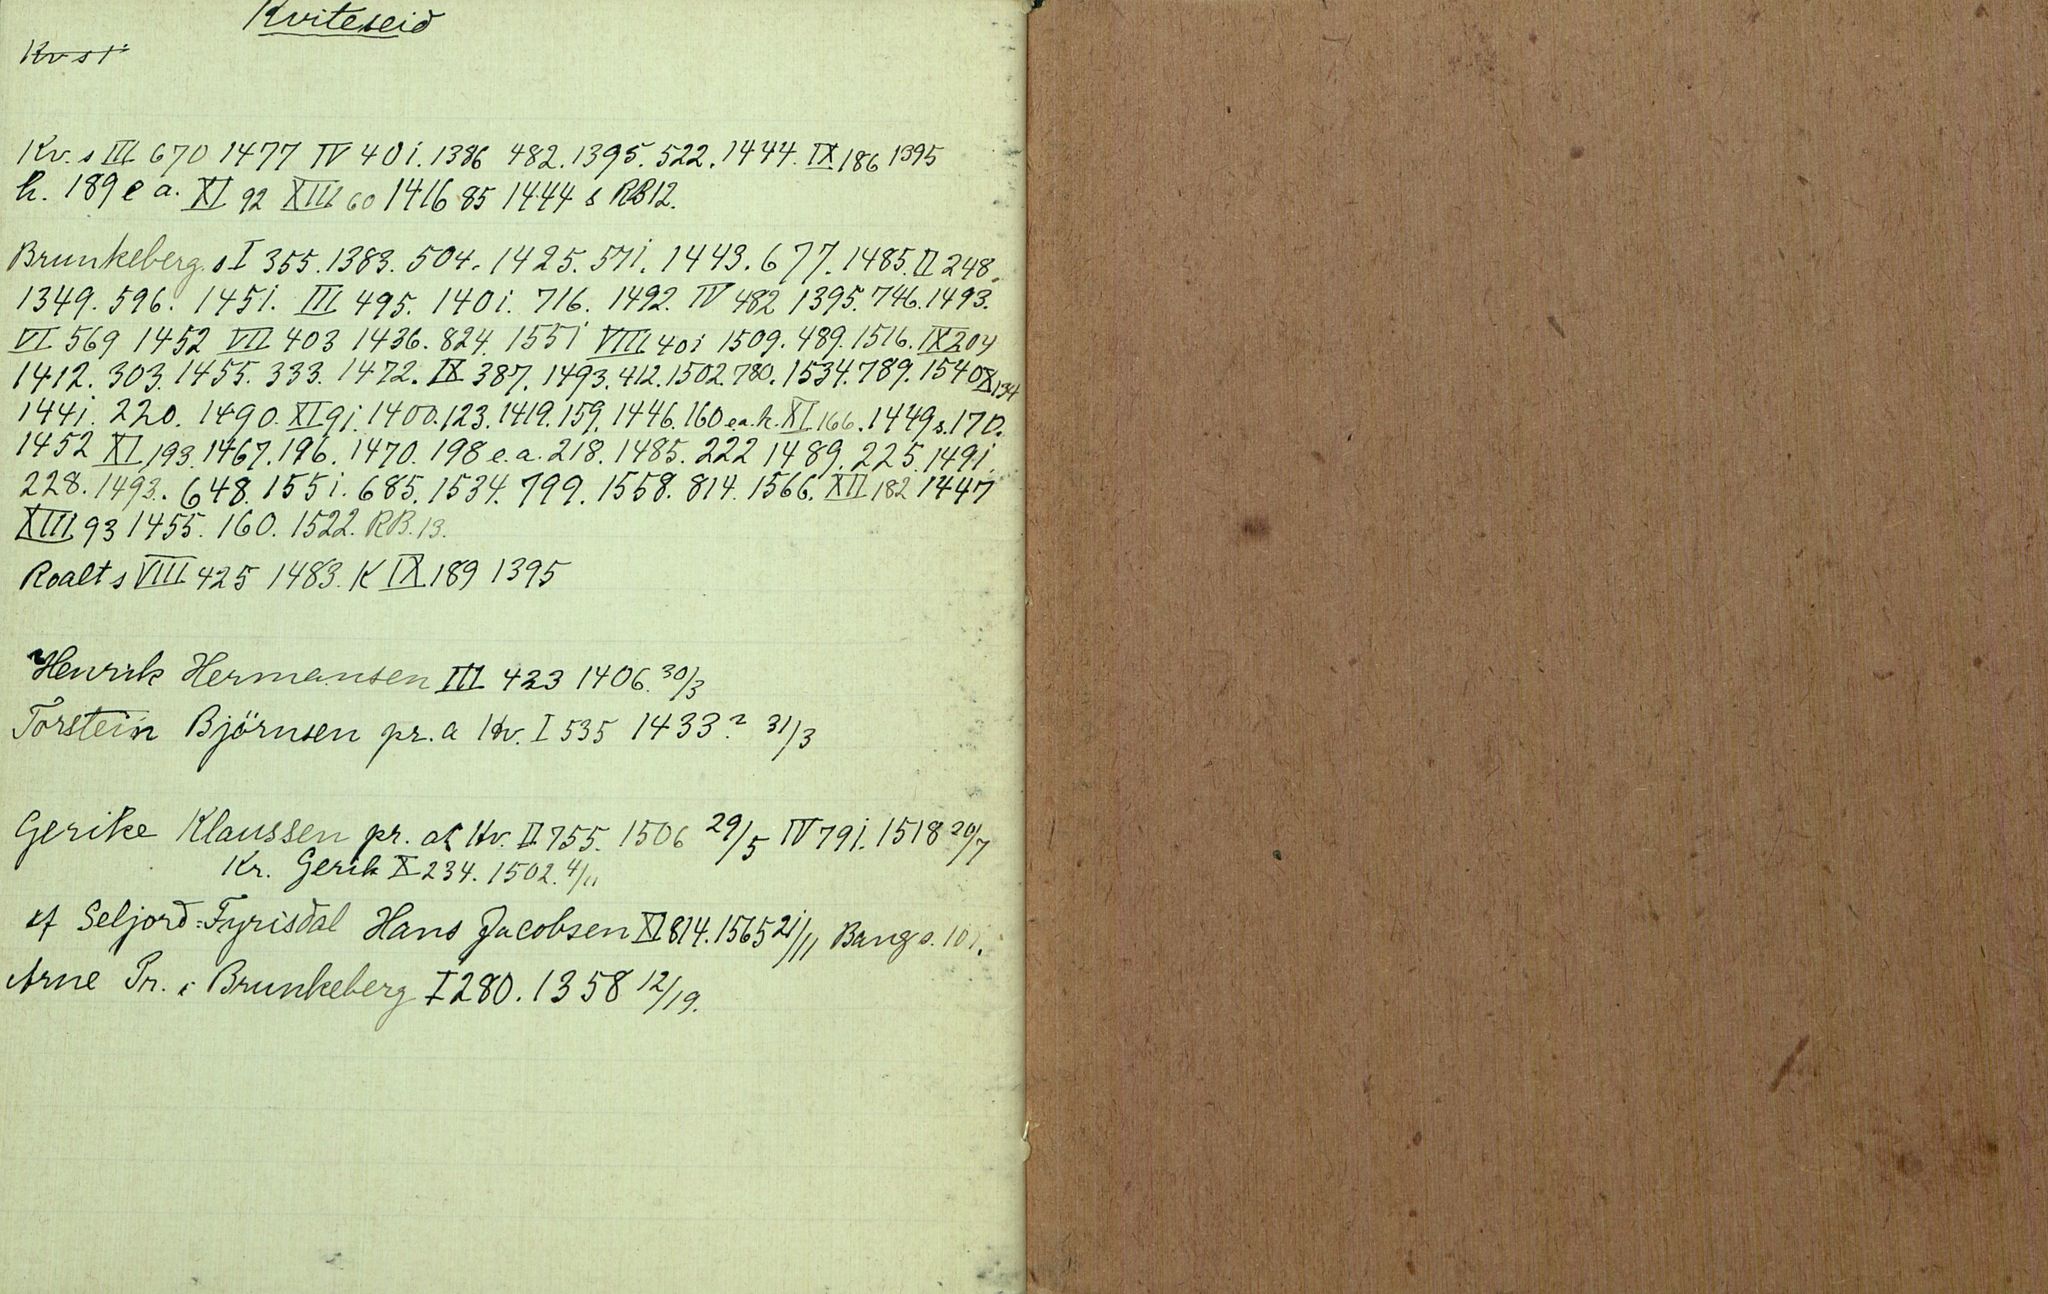 Kviteseid
Kv. s III 670 1477 IV 401. 1386 482. 1395. 522. 1444. IX 186 1395
h. 189 e a. XI 92 XIII 60 1416 85 1444 s RB 12.
Brunkeberg. s I 355. 1383. 504. 1425. 571. 1443. 677. 1485. II 248.
1349. 596. 1451. III 495. 1401. 716. 1492. IV 482 1395. 746. 1493.
VI 569 1452 VII 403 1436. 824. 1551 VIII 401 1509. 489. 1516. IX 204
1412. 303. 1455. 333. 1472. IX 387. 1493. 412. 1502. 780. 1534. 789. 1540 X 134
1441. 220. 1490. XI 91. 1400. 123. 1419. 159. 1446. 160 e a. h. XI 166. 1449 s. 170.
1452 XI 193. 1467. 196. 1470. 198 e. a. 218. 1485. 222 1489. 225. 1491.
228. 1493. 648. 1551. 685. 1534. 799. 1558. 814. 1566. XII 182 1447
XIII 93 1455. 160. 1522. RB. 13.
Roalt s VIII 425 1483. K IX 189 1395
Henrik Hermansen III 423 1406. 30/3
Torstein Björnsen pr. a Kv. I 535 1433? 31/3
Gerike Klaussen pr. at Kv. II 755. 1506 29/5 IV 791. 1518 20/7
Kr. Gerik X 234. 1502. 4/11
Seljord=Fyrisdal Hans Jacobsen XI 814. 1565 21/11 Bang s. 101.
Arne Pr. i Brunkeberg I 280. 1358 12/19.